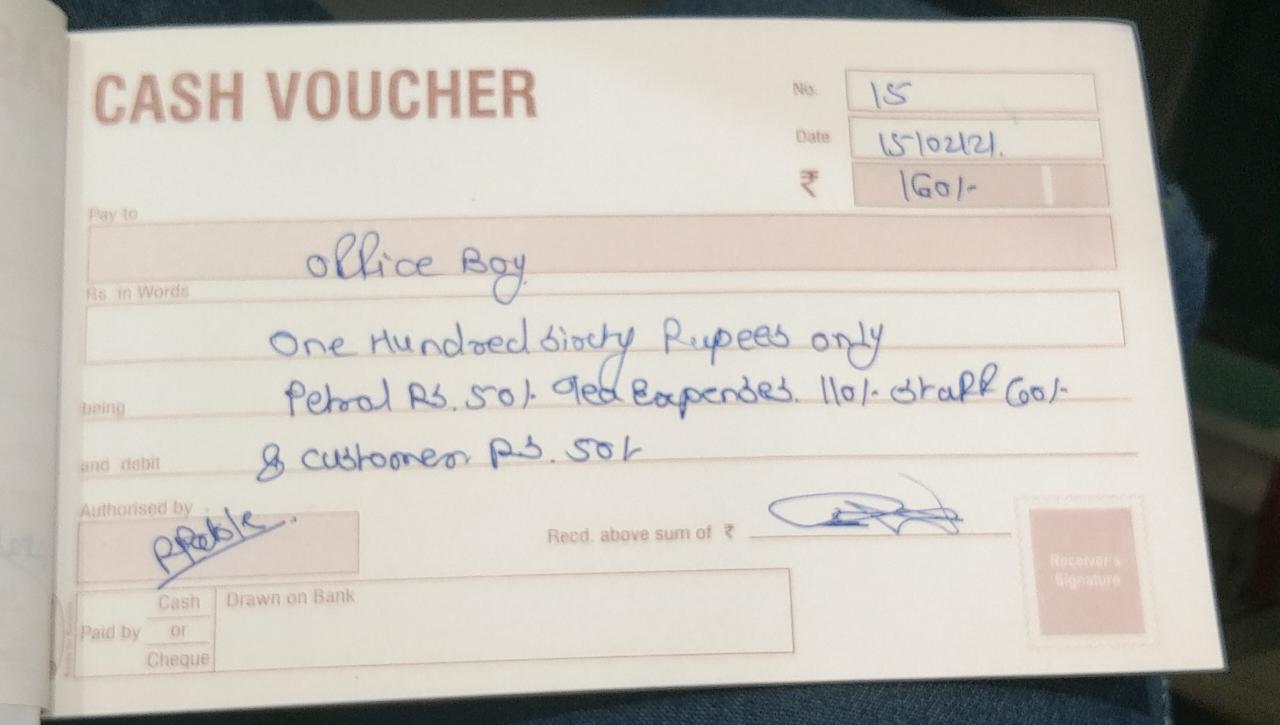 CASH VOUCHER
No. 15
Date 15/02/21.
₹ 160/-
Pay to
Office Boy
Rs. in Words
One Hundred Sixty Rupees only
being Petrol Rs. 50/- Tea Expenses. 110/- Staff 60/-
and debit & customer Rs. 50/-
Authorised by
Recd. above sum of ₹
Receiver's
Signature
Paid by Cash or Cheque
Drawn on Bank